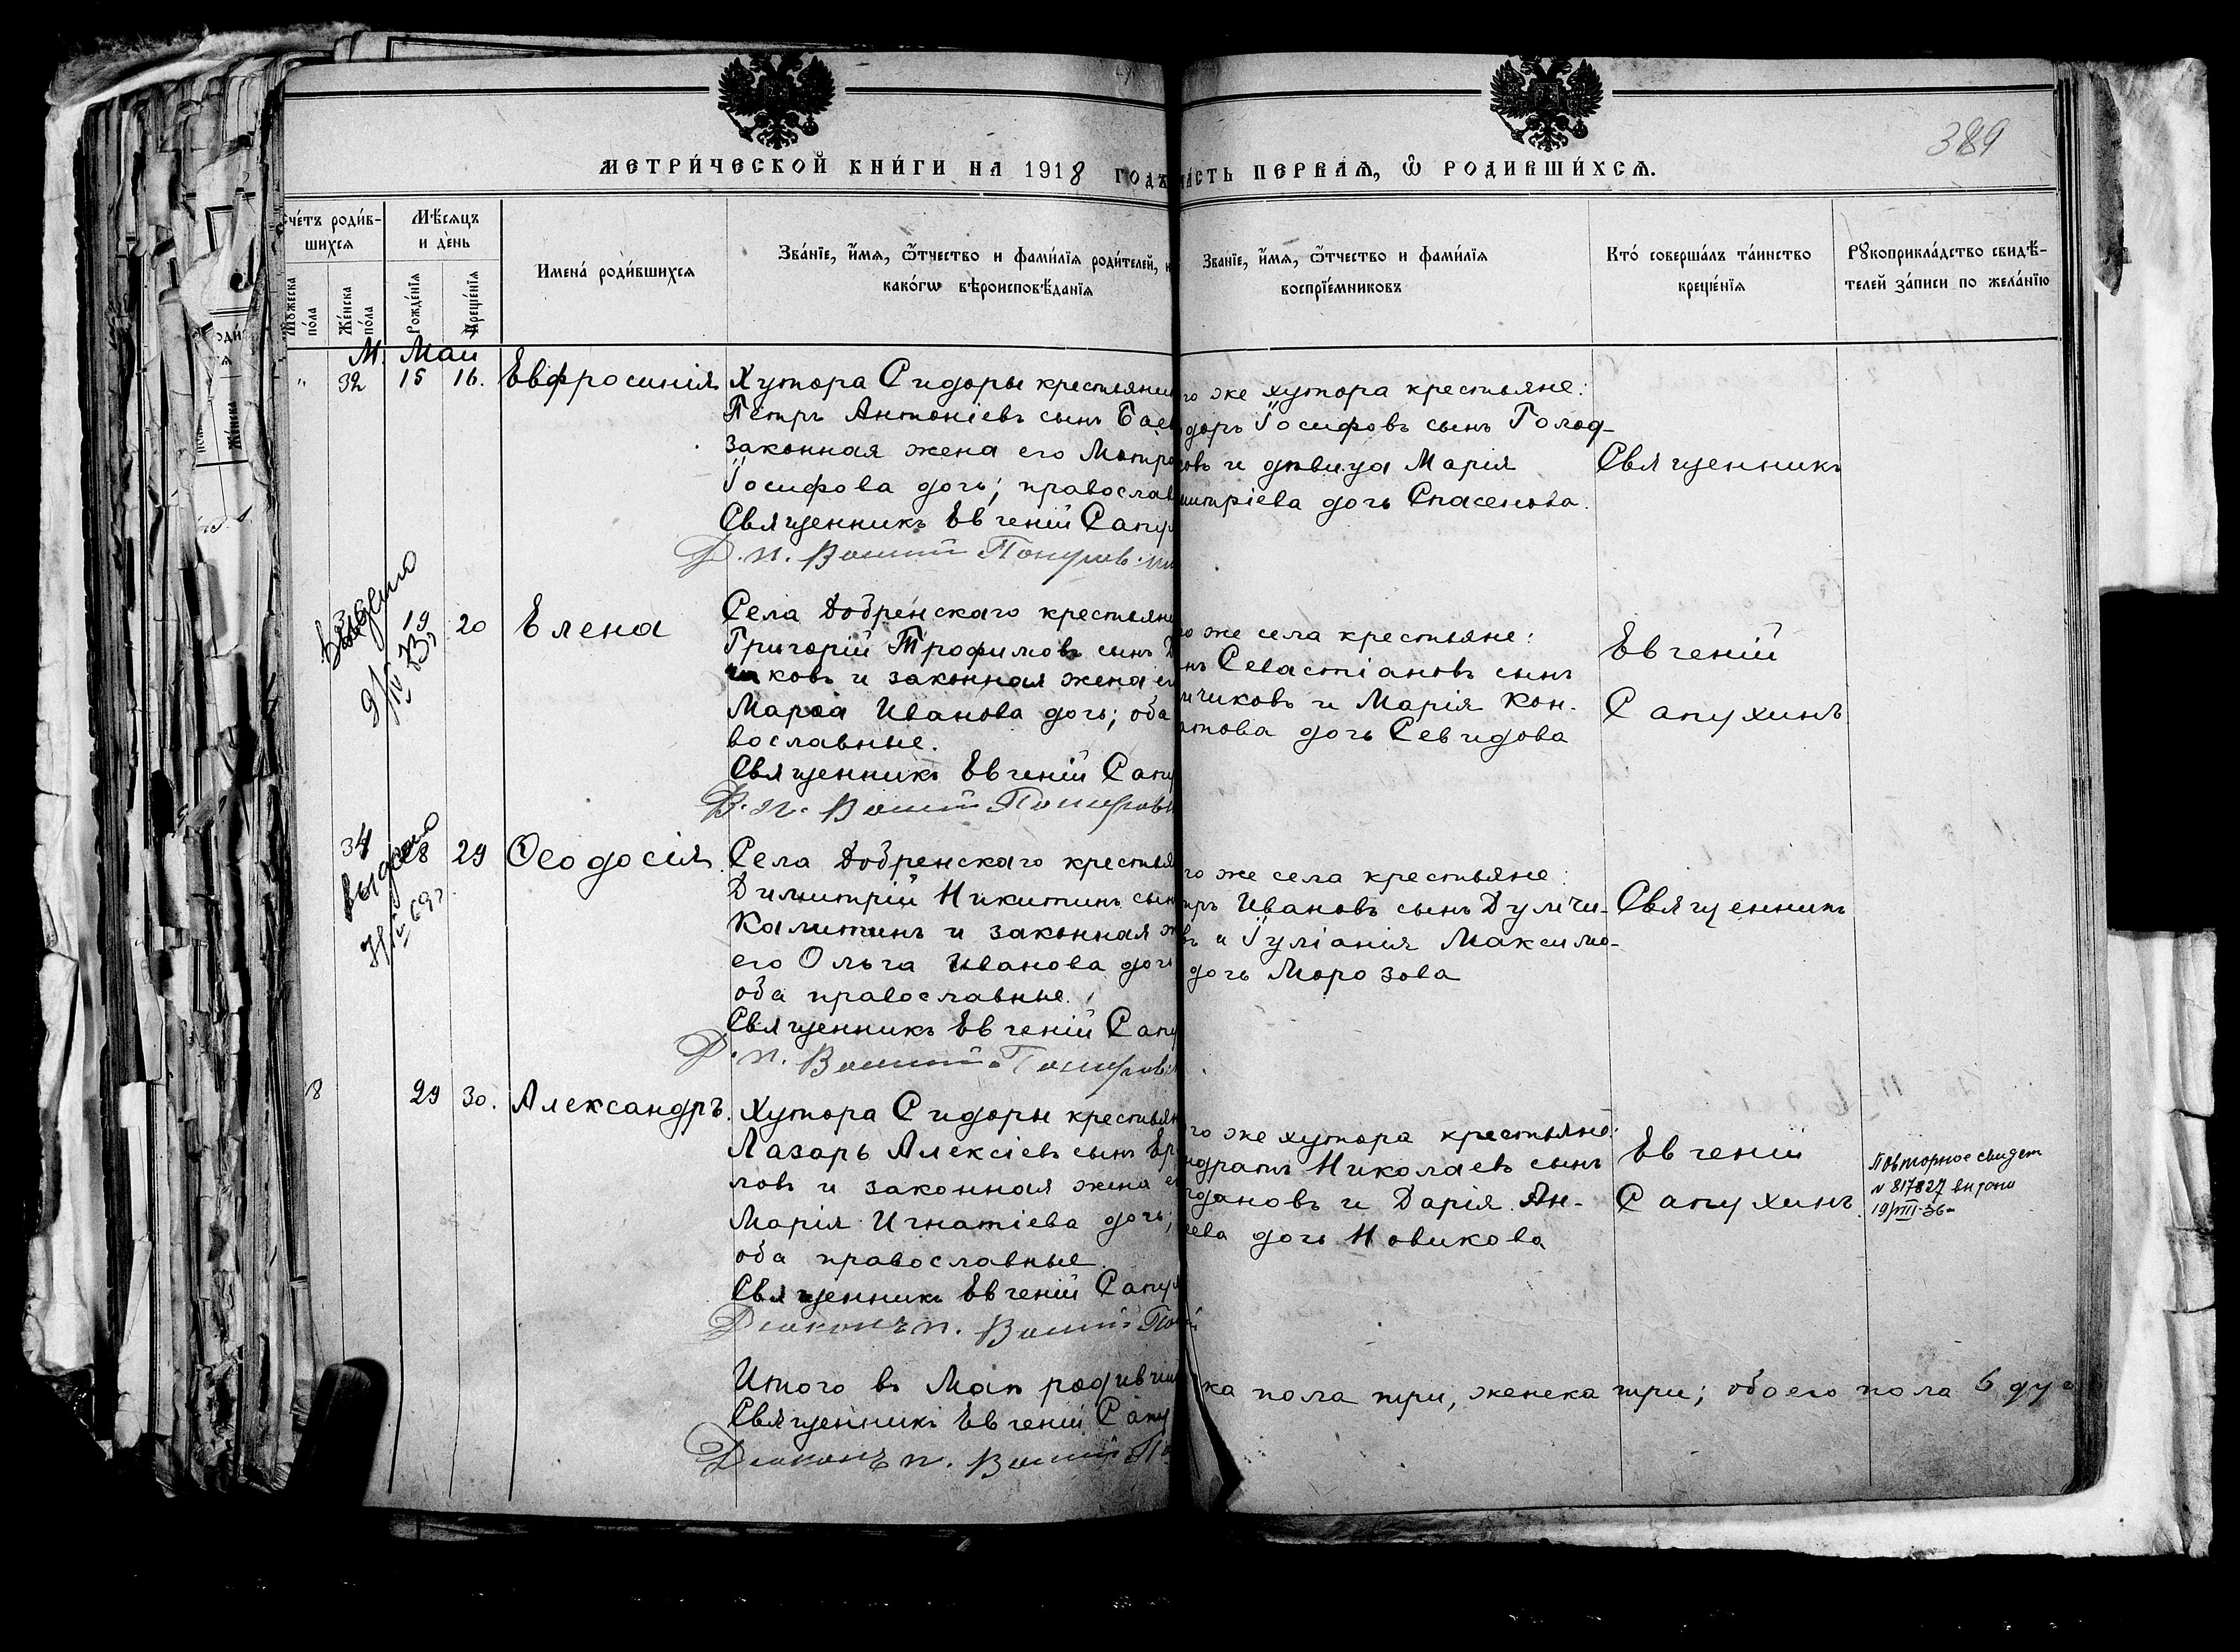 389
МЕТРИ́ЧЕСКОЙ КНИ́ГИ НА 1918 ГОДЪ
ЧА́СТЬ ПЕРВАѦ, Ѿ РОДИВШИ́ХСѦ.
счéтъ роди́в-
шихся
Мѣ́сяцъ
и де́нь
Мꙋжеска
по́ла
Же́нска
по́ла
Рожде́нїя
Креще́нїя
Имена́ роди́вшихся
Зва́нїе, и́мя, ѻ́тчество и фами́лїя роди́телей, и
како́гѡ вѣроисповѣ́данїя
Зва́нїе, и́мя, ѻ́тчество и фами́лїя
воспрїе́мниковъ
Кто́ соверша́лъ та́инство
креще́нїя
Рꙋкоприкла́дство свидѣ́-
телей за́писи по жела́нїю
М. Маи
" 32 15 16. Евфросинія
Хутора Сидоры крестьянин
Петръ Антоніевъ сынъ Бае
законная жена его Матро
Іосифова дочь; православ
Священникъ Евгеній Сапу
го же хутора крестьяне:
доръ Іосифовъ сынъ Голод-
ковъ и дѣвица Марія
митріева дочь Спасенова.
Священникъ
Выдано
19 20 Елена
Села Добренскаго крестьяне
Григорій Трофимовъ сынъ Д
чиковъ и законная жена ег
Марѳа Иванова дочь; оба
вославные.
Священникъ Евгеній Сапу
го же села крестьяне:
нъ Севастіановъ сынъ
мчиковъ и Марія Кон-
атова дочь Севидова
Евгеній
Сапухинъ
34 28 29 Ѳеодосія
выдано
Села Добренскаго крестья
Димитрій Никитинъ сын
Калитинъ и законная ж
его Ольга Иванова дочь
оба православные.
Священникъ Евгеній Сапу
го же села крестьяне:
тръ Ивановъ сынъ Думчи-
въ и Іуліанія Максимо-
дочь Морозова
Священникъ
18 29 30. Александръ.
Хутора Сидоры крестьян
Лазарь Алексіевъ сынъ Ер
ловъ и законная жена ег
Марія Игнатіева дочь;
оба православные.
Священникъ Евгеній Сапу
Діаконъ п.
го же хутора крестьяне:
ндратъ Николаевъ сынъ
гдановъ и Дарія Ан-
еева дочь Новикова
Евгеній
Сапухинъ.
Повторное свидет
№ 817827 выдано
19/VIII-36-
Итого въ Маѣ родивши
ска пола три, женска три; обоего пола 6 ду
Священникъ Евгеній Сапу
Діаконъ п.